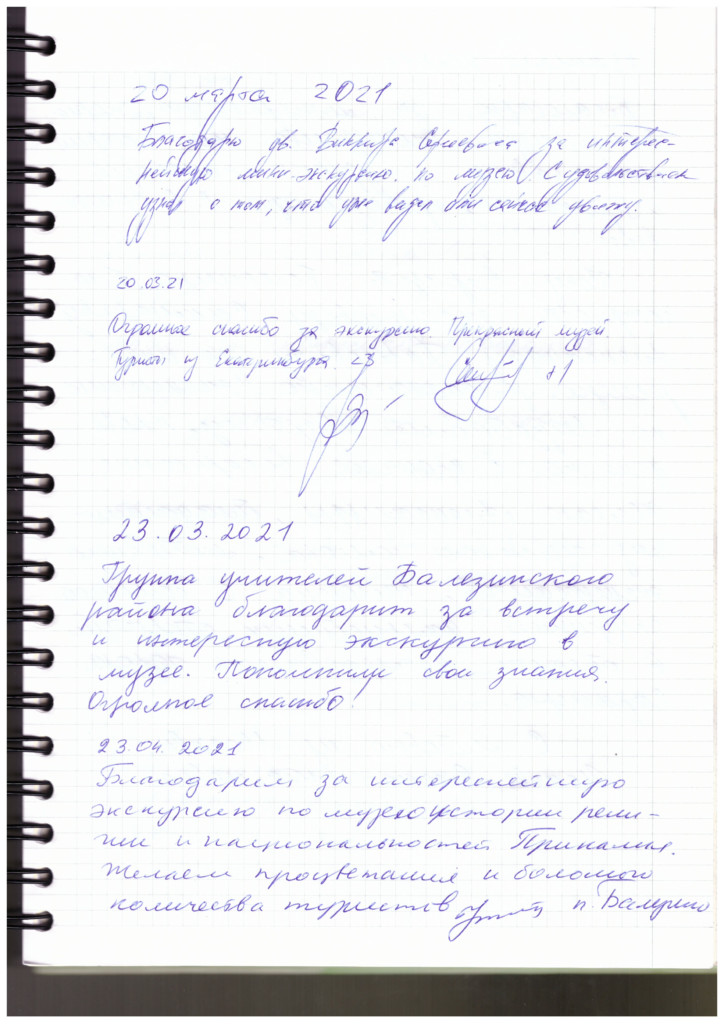 20 марта 2021
Благодарю за интерес-
нейшую мини-экскурсию по музею С удовольствием
узнал о том, что уже видел или сейчас увижу.
20.03.21
Огромное спасибо за экскурсию Прекрасный музей.
Туристы из Екатеринбурга. <3
+1
23.03.2021
Группа учителей Балезинского
района благодарит за встречу
и интересную экскурсию в
музее. Пополнили свои знания.
Огромное спасибо!
23.04.2021
Благодарим за интереснейшую
экскурсию по музею истории рели-
гии и национальностей Прикамья.
Желаем процветания и большого
количества туристов п. Балезино